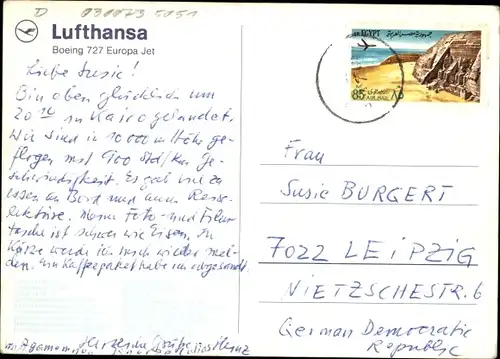 D 030873 5051
Lufthansa
Boeing 727 Europa Jet
A.R. EGYPT
85
AIR MAIL
Liebe Susie!
Bin eben glücklich um
20 in Kairo gelandet.
Wir sind in 10 000 m Höhe ge-
flogen mit 900 Std/Km Ge-
schwindigkeit. Es gab viel zu
essen an Bord und auch
lektüre. Meine Foto- und Film-
tasche ist schwer wie Eisen. In
Kürze werde ich mich wieder mel-
den. Ein Kaffeepaket habe ich abgesandt.
Herzliche Grüße
Frau
Susie BURGERT
7022 LEIPZIG
NIETZSCHESTR. 6
German Democratic
Republic